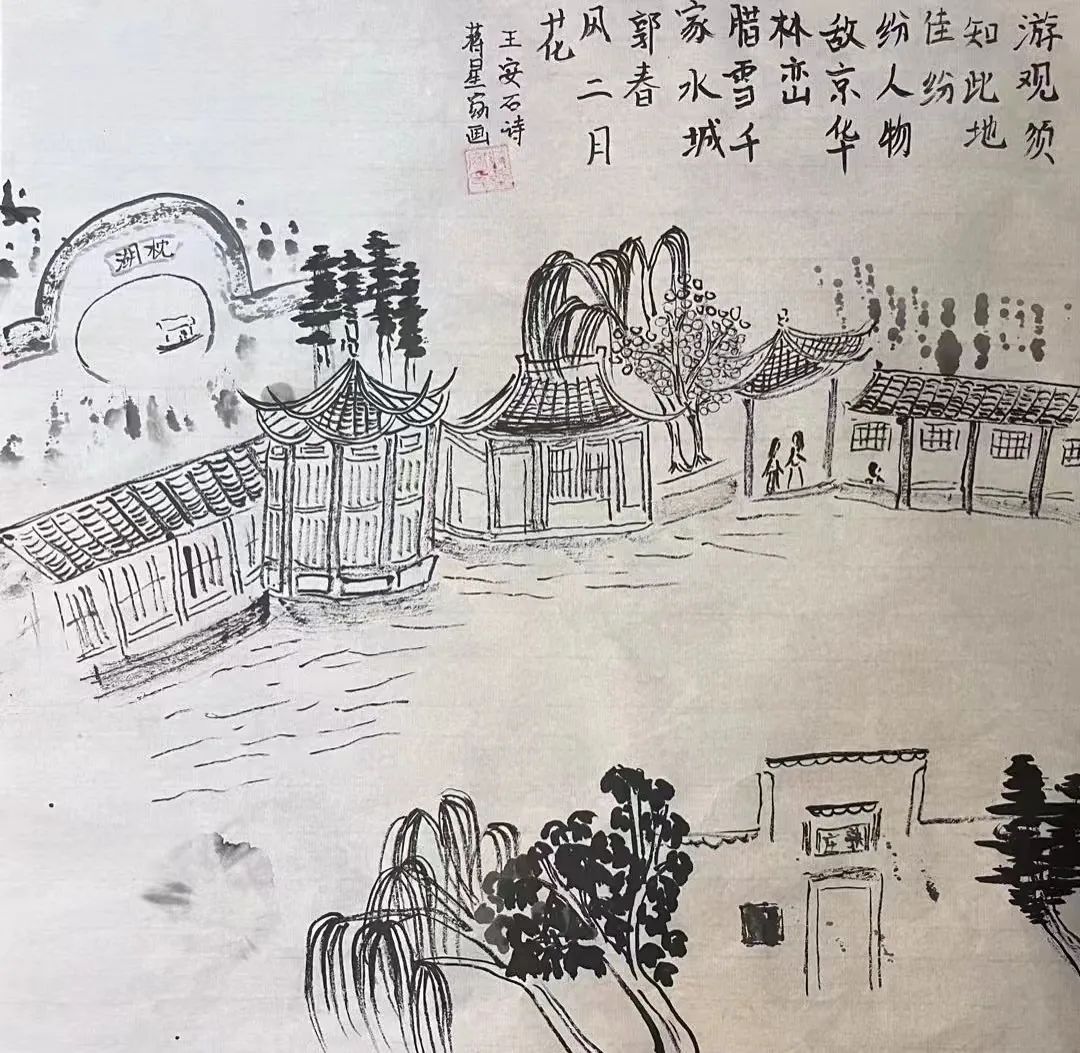 游观须
知此地
佳纷
纷人物
敌京华
林峦
腊雪千
家水城
郭春
风二月
花
王安石诗
蒋星画
枕湖
庄